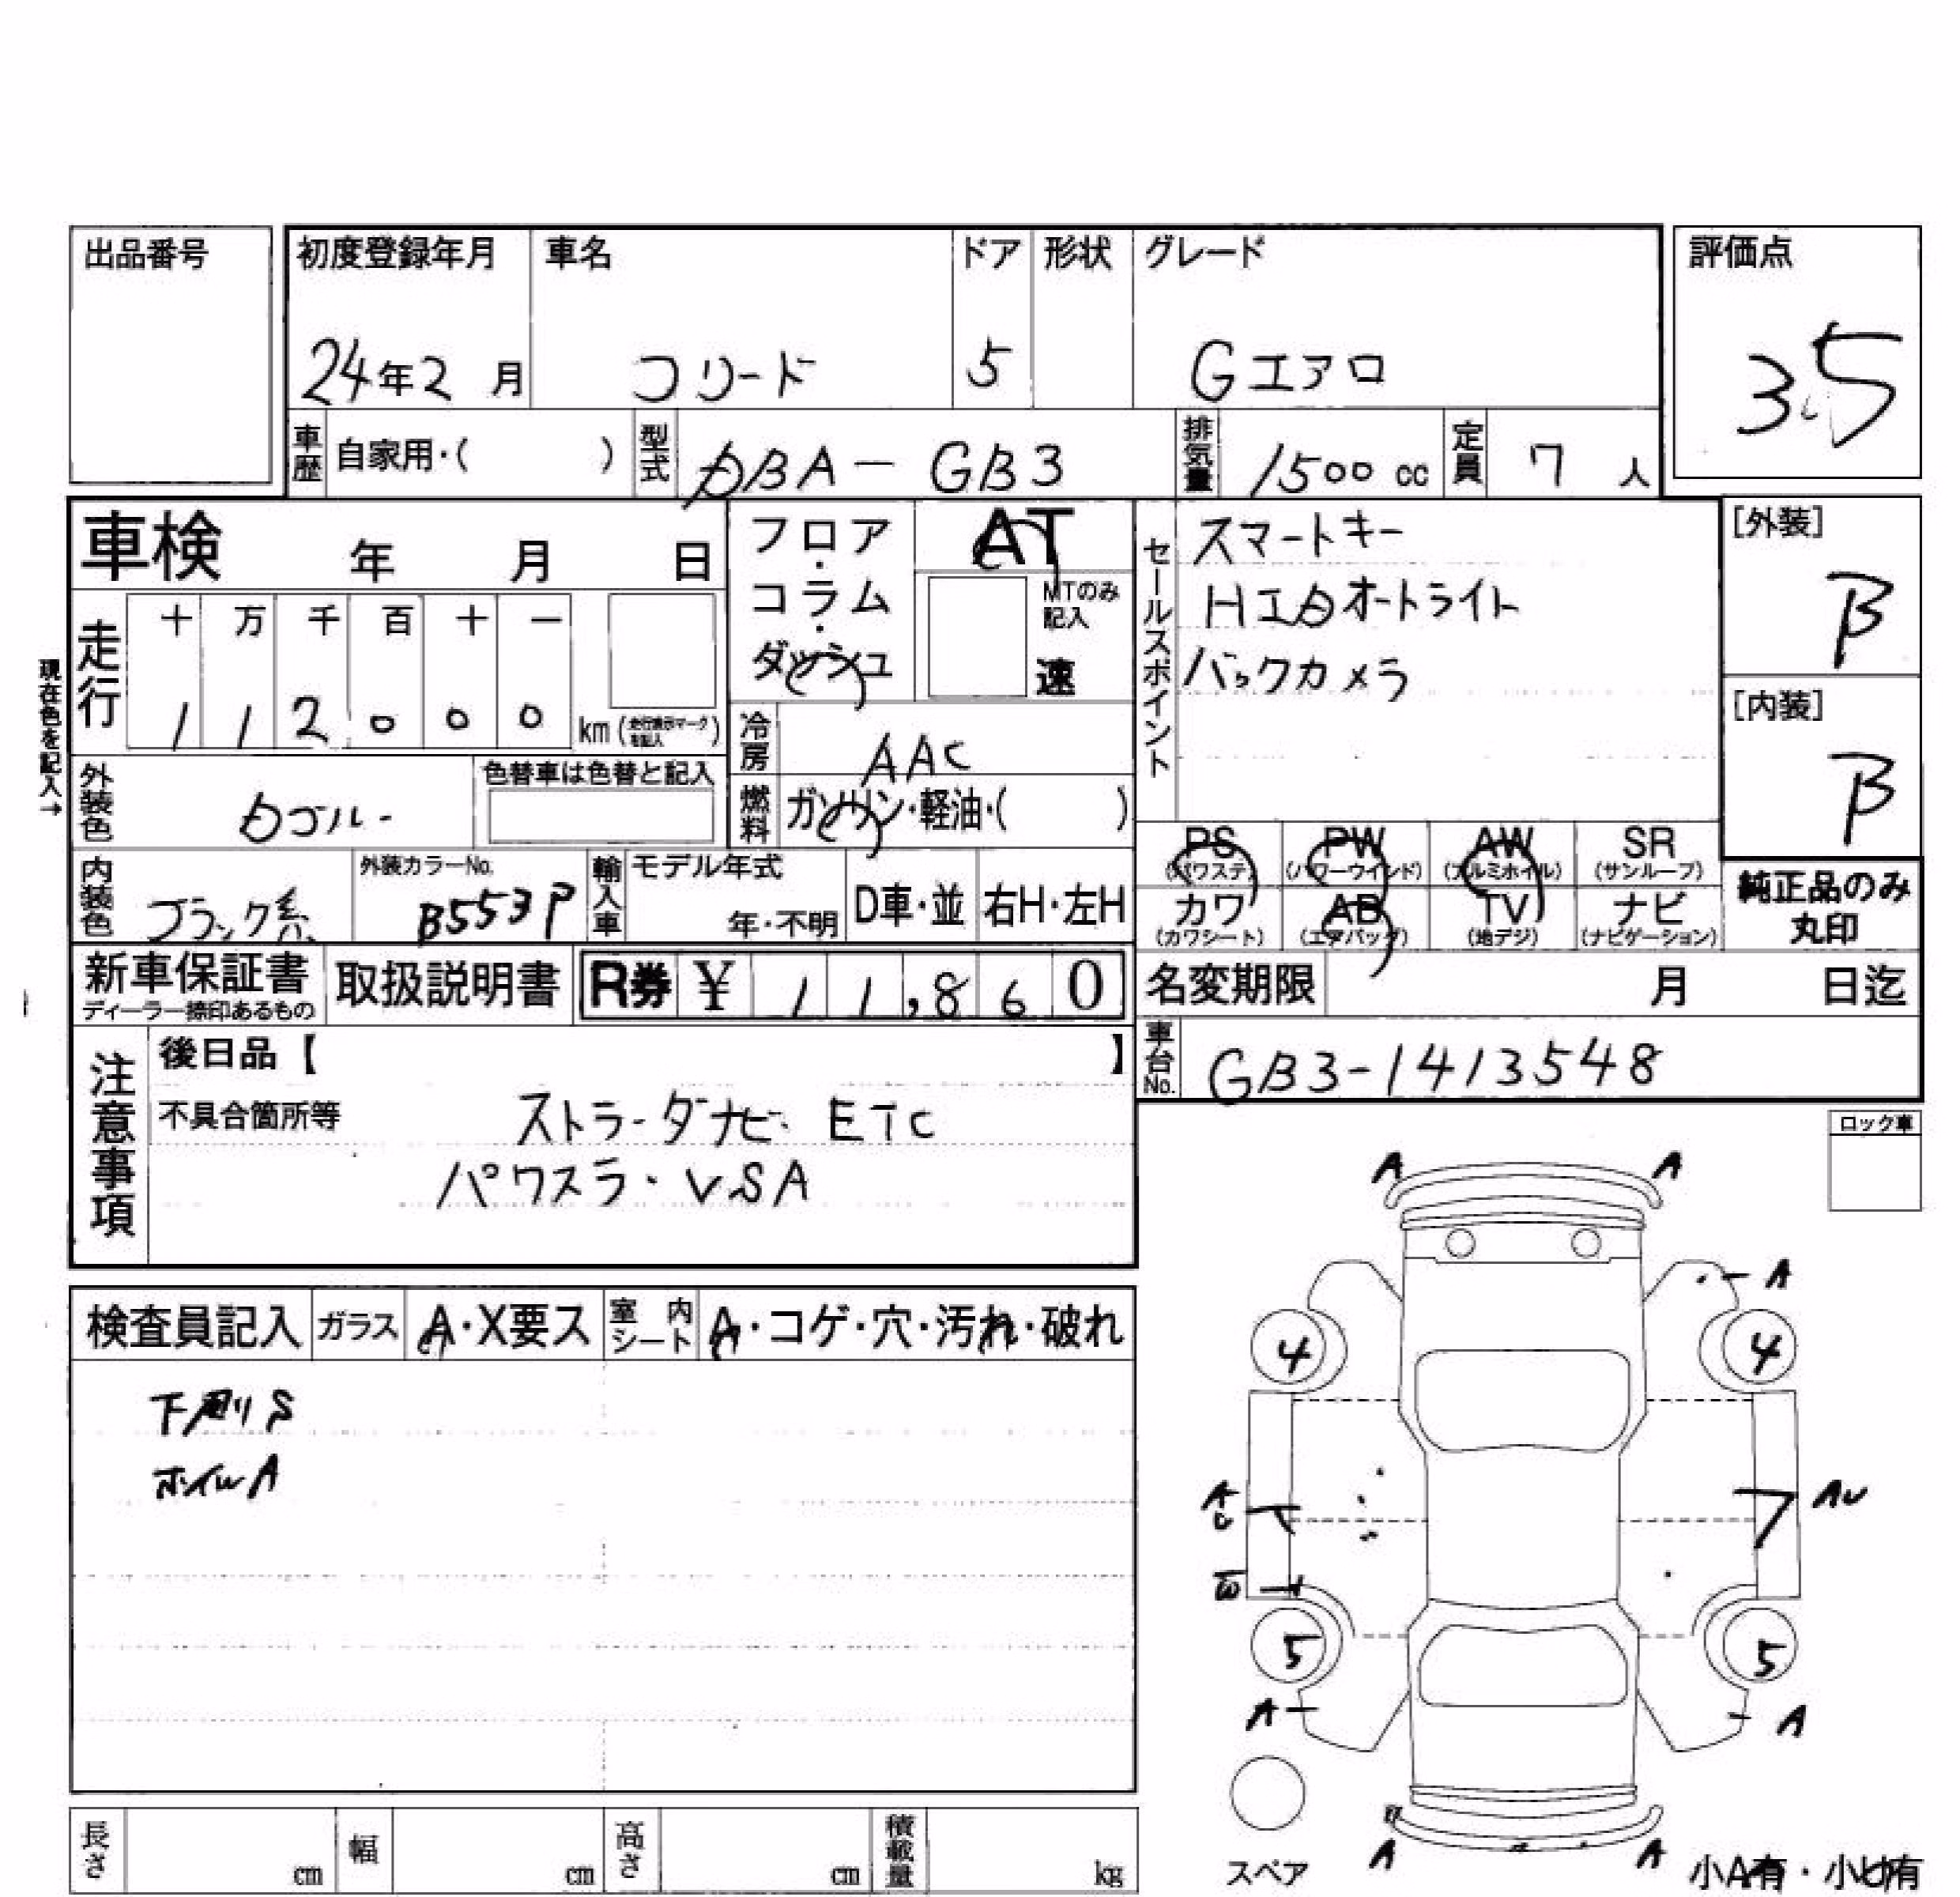 出品番号
初度登録年月 車名 ドア 形状 グレード 評価点
24年2月 フリード 5 Gエアロ 3.5
車歴 自家用・( ) 型式 DBA-GB3 排気量 1500cc 定員 7人
車検 年 月 日
フロア・コラム・ダッシュ AT
MTのみ記入
速
セールスポイント
スマートキー
HIDオートライト
バックカメラ
[外装]
B
[内装]
B
現在色を記入→
走行 十 万 千 百 十 一
1 1 2 0 0 0 km(走行表示マークを記入)
冷房 AAC
外装色
色替車は色替と記入
燃料 ガソリン・軽油・( )
PS(パワステ) PW(パワーウインド) AW(アルミホイル) SR(サンルーフ)
カワ(カワシート) AB(エアバッグ) TV(地デジ) ナビ(ナビゲーション)
純正品のみ丸印
内装色 ブラック系 外装カラーNo. B553P
輸入車 モデル年式 年・不明 D車・並 右H・左H
新車保証書 取扱説明書 R券 ¥ 11,860
ディーラー捺印あるもの
名変期限 月 日迄
車台No. GB3-1413548
注意事項
後日品【 】
不具合箇所等 ストラーダナビ ETC
パワスラ・VSA
ロック車
検査員記入 ガラス A・X要ス 室内シート A・コゲ・穴・汚れ・破れ
下廻りS
ホイルA
A A
A
4 4
A U AU
W
5 5
A A
A A
スペア 小A有・小U有
長さ cm 幅 cm 高さ cm 積載量 kg